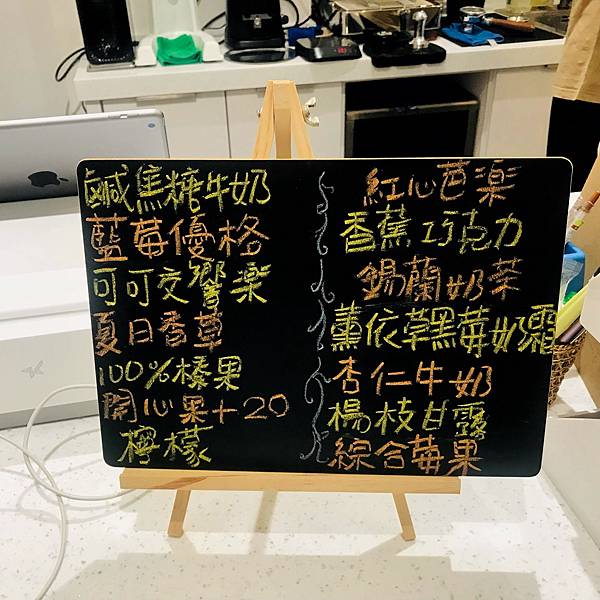 鹹焦糖牛奶
藍莓優格
可可交響楽
夏日香草
100%榛果
開心果+20
檸檬
紅心芭楽
香蕉巧克力
錫蘭奶茶
薰依草黑莓奶霜
杏仁牛奶
楊枝甘露
綜合莓果